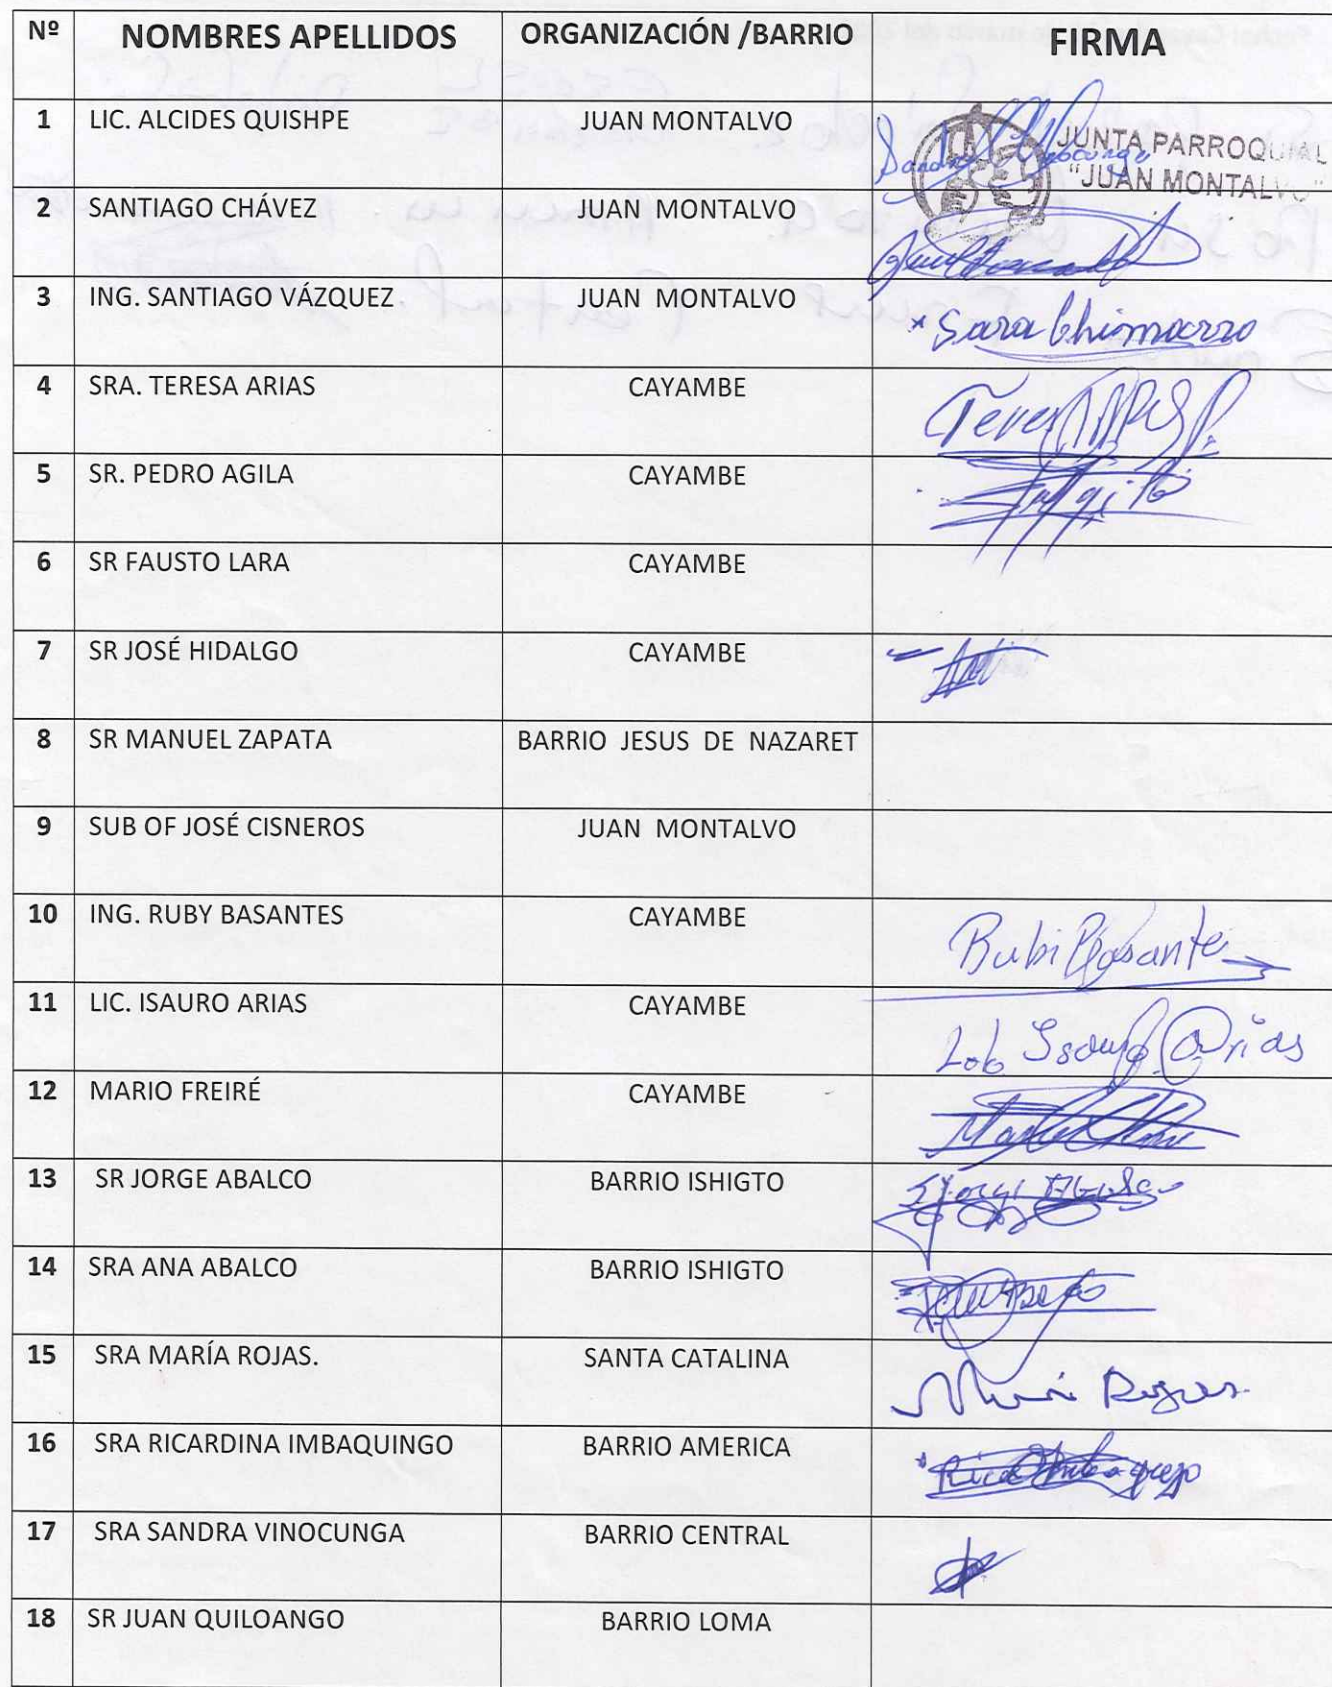 Nº NOMBRES APELLIDOS ORGANIZACIÓN /BARRIO FIRMA
1 LIC. ALCIDES QUISHPE JUAN MONTALVO
JUNTA PARROQUIAL
"JUAN MONTALVO"
2 SANTIAGO CHÁVEZ JUAN MONTALVO
3 ING. SANTIAGO VÁZQUEZ JUAN MONTALVO Sara Chimarro
4 SRA. TERESA ARIAS CAYAMBE
5 SR. PEDRO AGILA CAYAMBE
6 SR FAUSTO LARA CAYAMBE
7 SR JOSÉ HIDALGO CAYAMBE
8 SR MANUEL ZAPATA BARRIO JESUS DE NAZARET
9 SUB OF JOSÉ CISNEROS JUAN MONTALVO
10 ING. RUBY BASANTES CAYAMBE Rubi Basantes
11 LIC. ISAURO ARIAS CAYAMBE Isauro Arias
12 MARIO FREIRÉ CAYAMBE
13 SR JORGE ABALCO BARRIO ISHIGTO
14 SRA ANA ABALCO BARRIO ISHIGTO
15 SRA MARÍA ROJAS. SANTA CATALINA
16 SRA RICARDINA IMBAQUINGO BARRIO AMERICA
17 SRA SANDRA VINOCUNGA BARRIO CENTRAL
18 SR JUAN QUILOANGO BARRIO LOMA